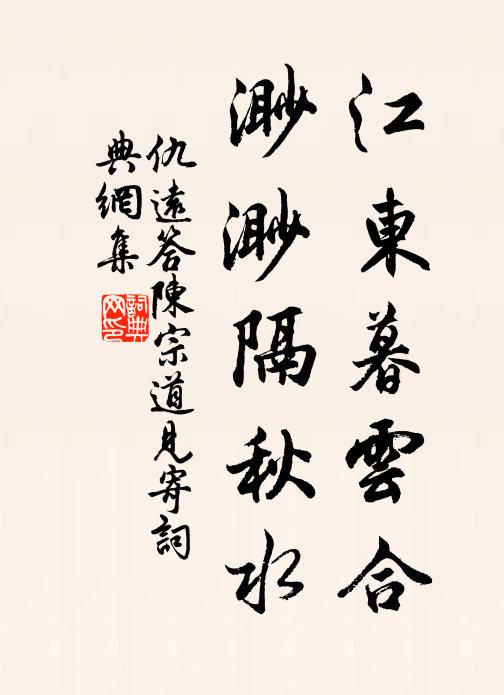 江東暮雲合
渺渺隔秋水
仇遠答陳宗道見寄詞
典網集
詞典網印